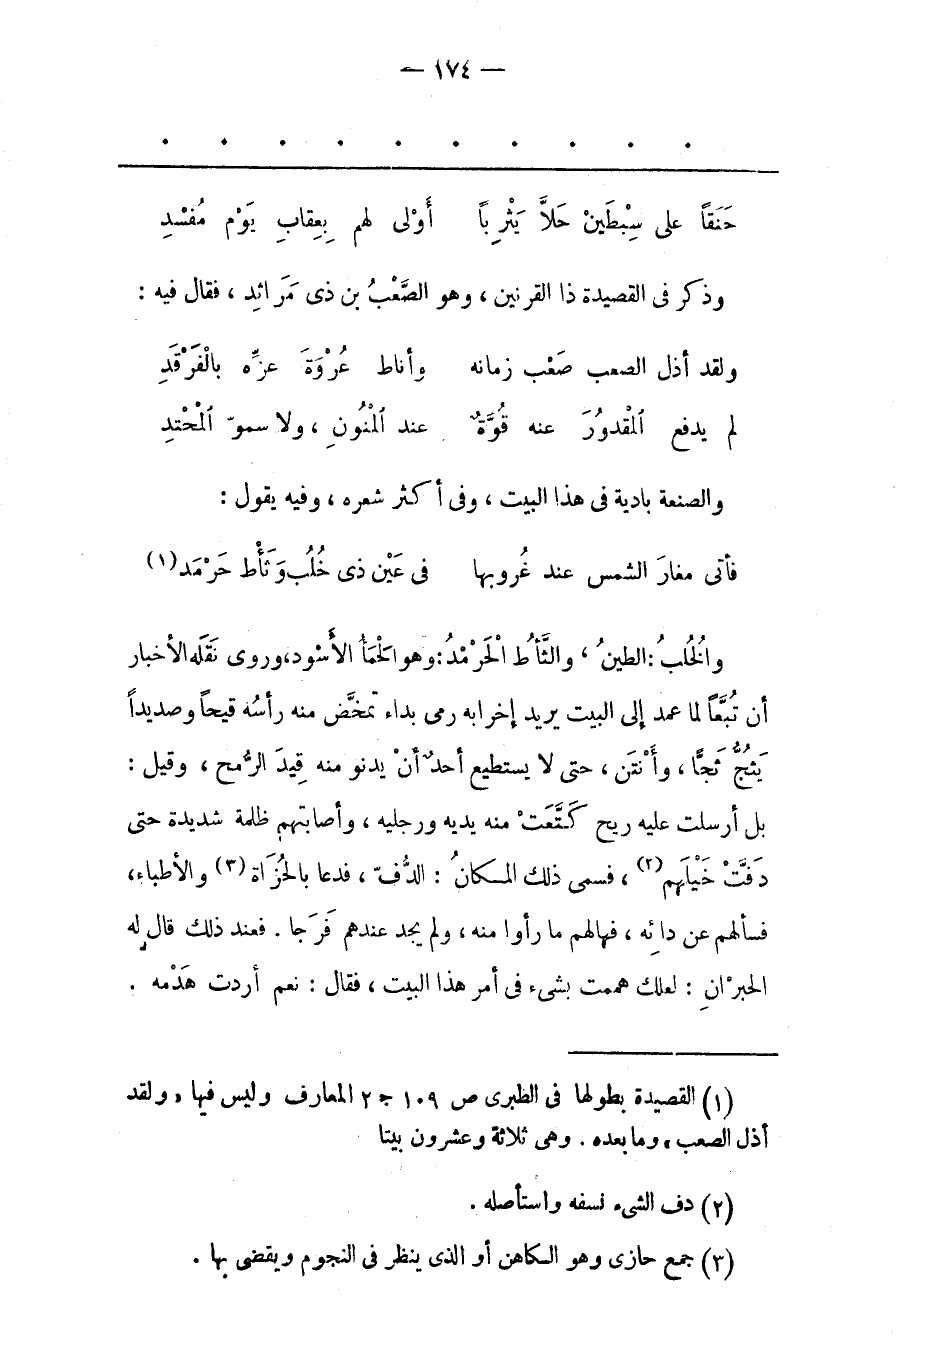 — ١٧٤ —
. . . . . . . . . .
حَنَقاً على سِبْطَينْ حَلاَّ يَثْرِباً أَوْلى لهم بِعِقابِ يَوْم مُفسْدِ
وذكر فى القصيدة ذا القرنين ، وهو الصَّعْبُ بن ذى مَرائد ، فقال فيه :
ولقد أذل الصعب صَعْب زمانه وأناط عُرْوَةَ عزِّه بالْفَرْقَدِ
لم يدفع ٱلمْقدورُ عنه قُوَّةٌ عند ٱلمْنُونِ ، ولا سموّ ٱلمْحْتدِ
والصنعة بادية فى هذا البيت ، وفى أكثر شعره ، وفيه يقول :
فأتى مغارَ الشمس عند غُروبها فى عَيْن ذى خُلُب وَثَأْط حَرْمَد (١)
والْخُلبُ : الطينُ ، والثَّأْط الْحَرْمْدُ : وهو الْحَمأُ الأَسْود، وروى نَقَله الأخبار
أن تُبَّعاً لما عمد إلى البيت يريد إخرابه رمى بداء تمخَّض منه رأسُه قيحاً وصديداً
يَثجُّ ثَجًّا ، وأَنْتَن ، حتى لا يستطيع أحدٌ أنْ يدنو منه قِيدَ الرُّمح ، وقيل :
بل أرسلت عليه ريح كَتَّعَتْ منه يديه ورجليه ، وأصابتهم ظلمة شديدة حتى
دَفَّتْ خَيْلَهم (٢) ، فسمى ذلك المكانُ : الدُّفّ ، فدعا بالحُزَاة (٣) والأطباء،
فسألهم عن دائِه ، فهالهم ما رأوا منه ، ولم يجد عندهم فَرَجا . فعند ذلك قال له
الحبرْانِ : لعلك هممت بشىء فى أمر هذا البيت ، فقال : نعم أردت هَدْمه .
(١) القصيدة بطولها فى الطبرى ص ١٠٩ ج ٢ المعارف وليس فيها « ولقد
أذل الصعب » وما بعده . وهى ثلاثة وعشرون بيتا
(٢) دف الشىء نسفه واستأصله .
(٣) جمع حازى وهو الكاهن أو الذى ينظر فى النجوم ويقضى بها .